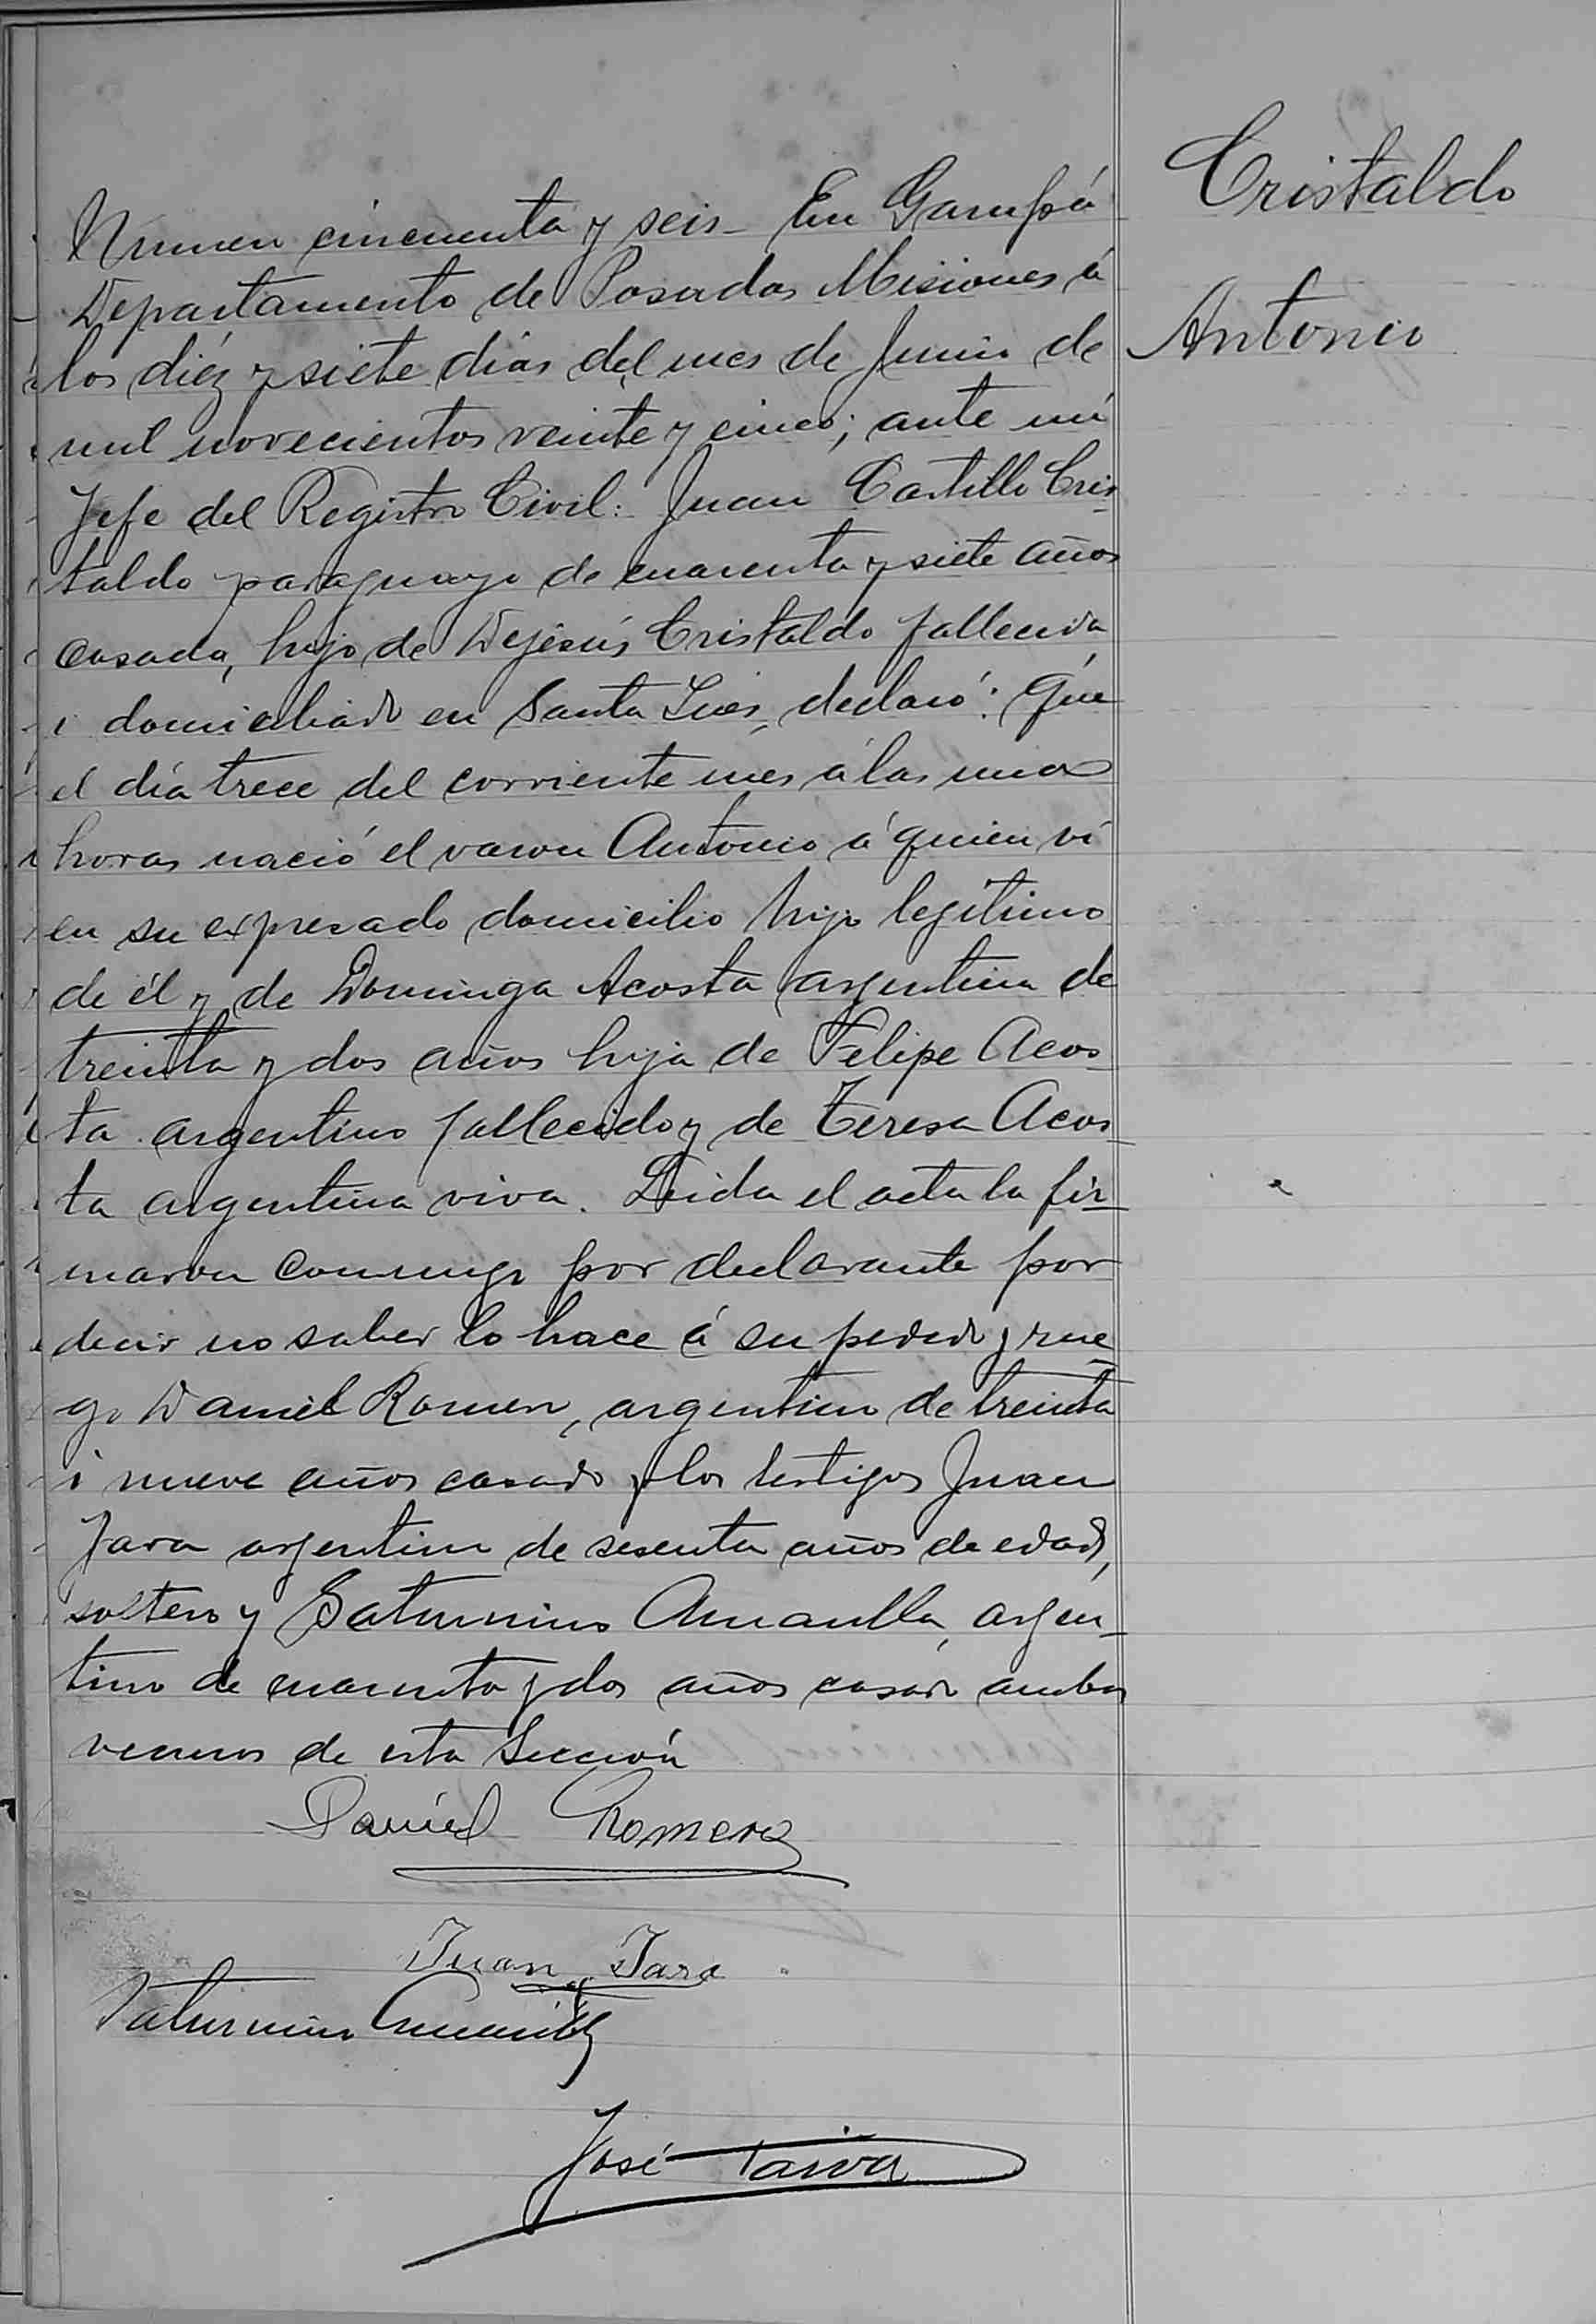 Cristaldo
Antonio
Numero cincuenta y seis – En Garupá
Departamento de Posadas Misiones á
los diéz y siete dias del mes de Junio de
mil novecientos veinte y cinco; ante mi
Jefe del Registro Civil: Juan Castillo Cris-
taldo paraguayo de cuarenta y siete años
casado, hijo de Dejesús Cristaldo fallecida,
i domiciliado en Santa Inés, declaró: Que
el día trece del corriente mes á las una
horas nació el varon Antonio á quien vi
en su expresado domicilio hijo legítimo
de él y de Dominga Acosta argentina de
treinta y dos años hija de Felipe Acos-
ta argentino fallecido y de Teresa Acos-
ta argentina viva. Leida el acta la fir-
maron conmigo por declarante por
decir no saber lo hace á su pedido y rue-
go Daniel Romero, argentino de treinta
i nueve años casado y los testigos Juan
Jara argentino de sesenta años de edad,
soltero y Saturnino Amarilla, argen-
tino de cuarenta y dos años casado ambos
vecinos de esta Sección
Daniel Romero
Juan Jara
Saturnino Amarilla
José Paiva